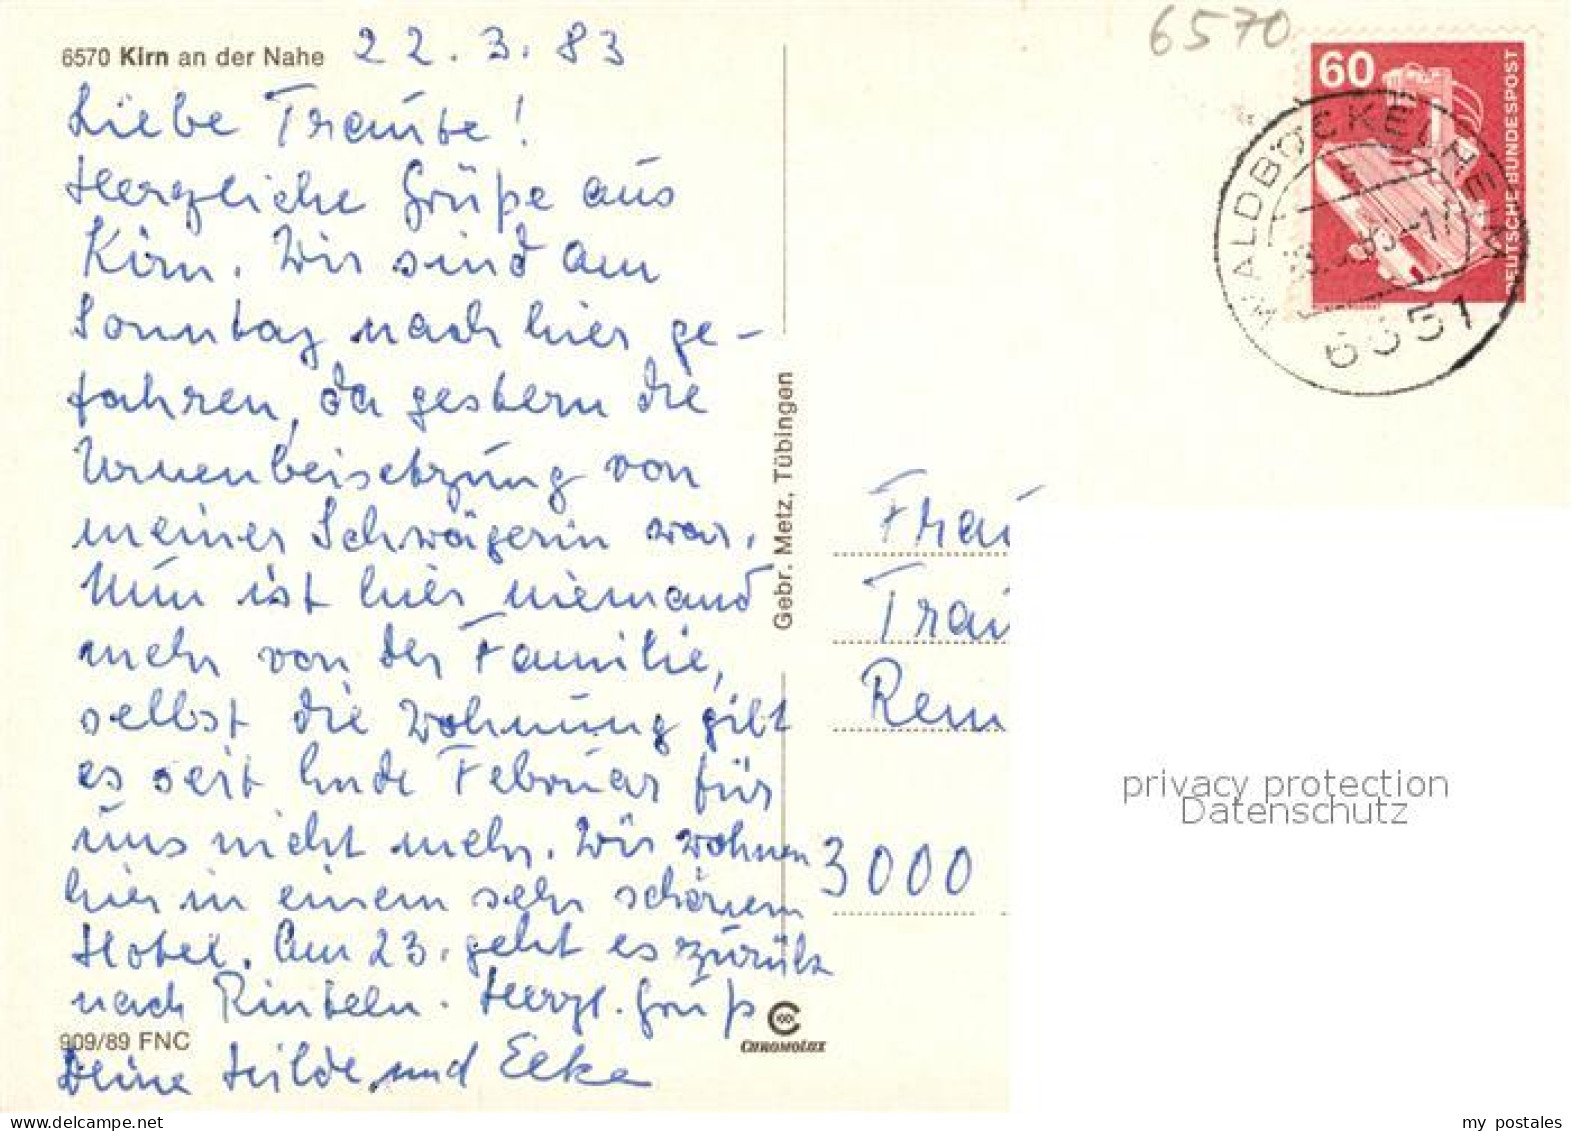 6570 Kirn an der Nahe 22.3.83
Liebe Traute!
Herzliche Grüße aus
Kirn. Wir sind am
Sonntag nach hier ge-
fahren, da gestern die
Urnenbeisetzung von
meiner Schwägerin war.
Nun ist hier niemand
mehr von der Familie,
selbst die Wohnung gibt
es seit Ende Februar für
uns nicht mehr. Wir wohnen
hier in einem sehr schönem
Hotel. Am 23. geht es zurück
nach Rinteln. Herzl. Gruß
Deine Hilde und Elke
909/89 FNC
CHROMOLUX
Gebr. Metz, Tübingen
6570
60
DEUTSCHE BUNDESPOST
WALDBÖCKELHEIM
6551
Frau
Trau
Rem
3000
privacy protection
Datenschutz
my postales
www.delcampe.net